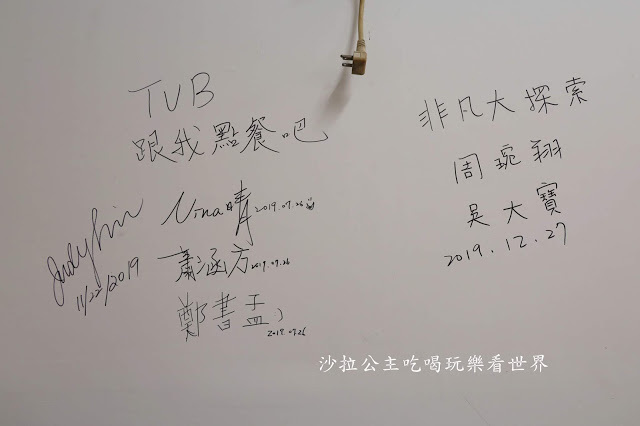 TVB
跟我點餐吧
Nina晴 2019.07.26
蕭涵方 2019.07.26
鄭書孟 2019.07.26
Judy Lin
11/22/2019
非凡大探索
周琬翔
吳大寶
2019.12.27
沙拉公主吃喝玩樂看世界